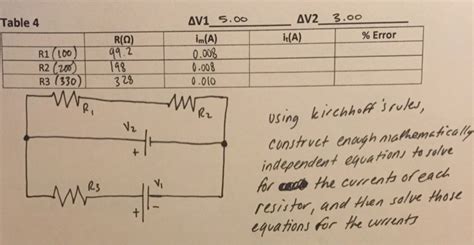 Table 4 ΔV1 5.00 ΔV2 3.00
R(Ω) Im(A) It(A) % Error
R1 (100) 99.2 0.008
R2 (200) 198 0.008
R3 (330) 328 0.010
R1 R2
V2
+
R3 V1
+ -
using kirchhoff's rules,
construct enough mathematically
independent equations to solve
for the currents of each
resistor, and then solve those
equations for the currents